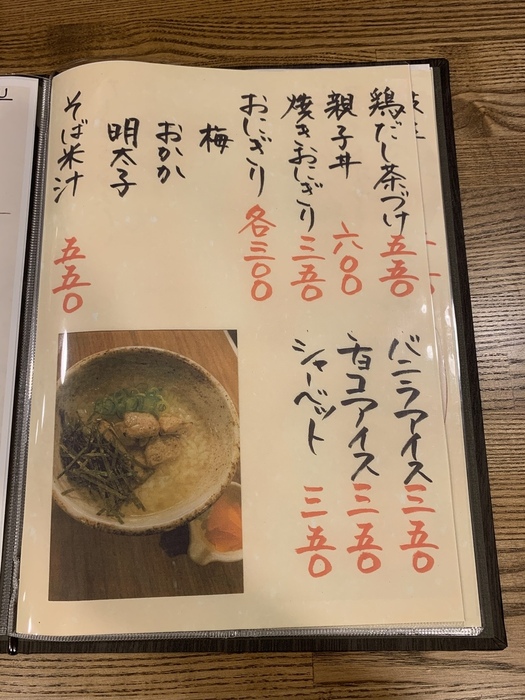 鶏だし茶づけ 五五〇
親子丼 六〇〇
焼きおにぎり 三五〇
おにぎり 各三〇〇
梅
おかか
明太子
そば米汁 五五〇
バニラアイス 三五〇
チョコアイス 三五〇
シャーベット 三五〇